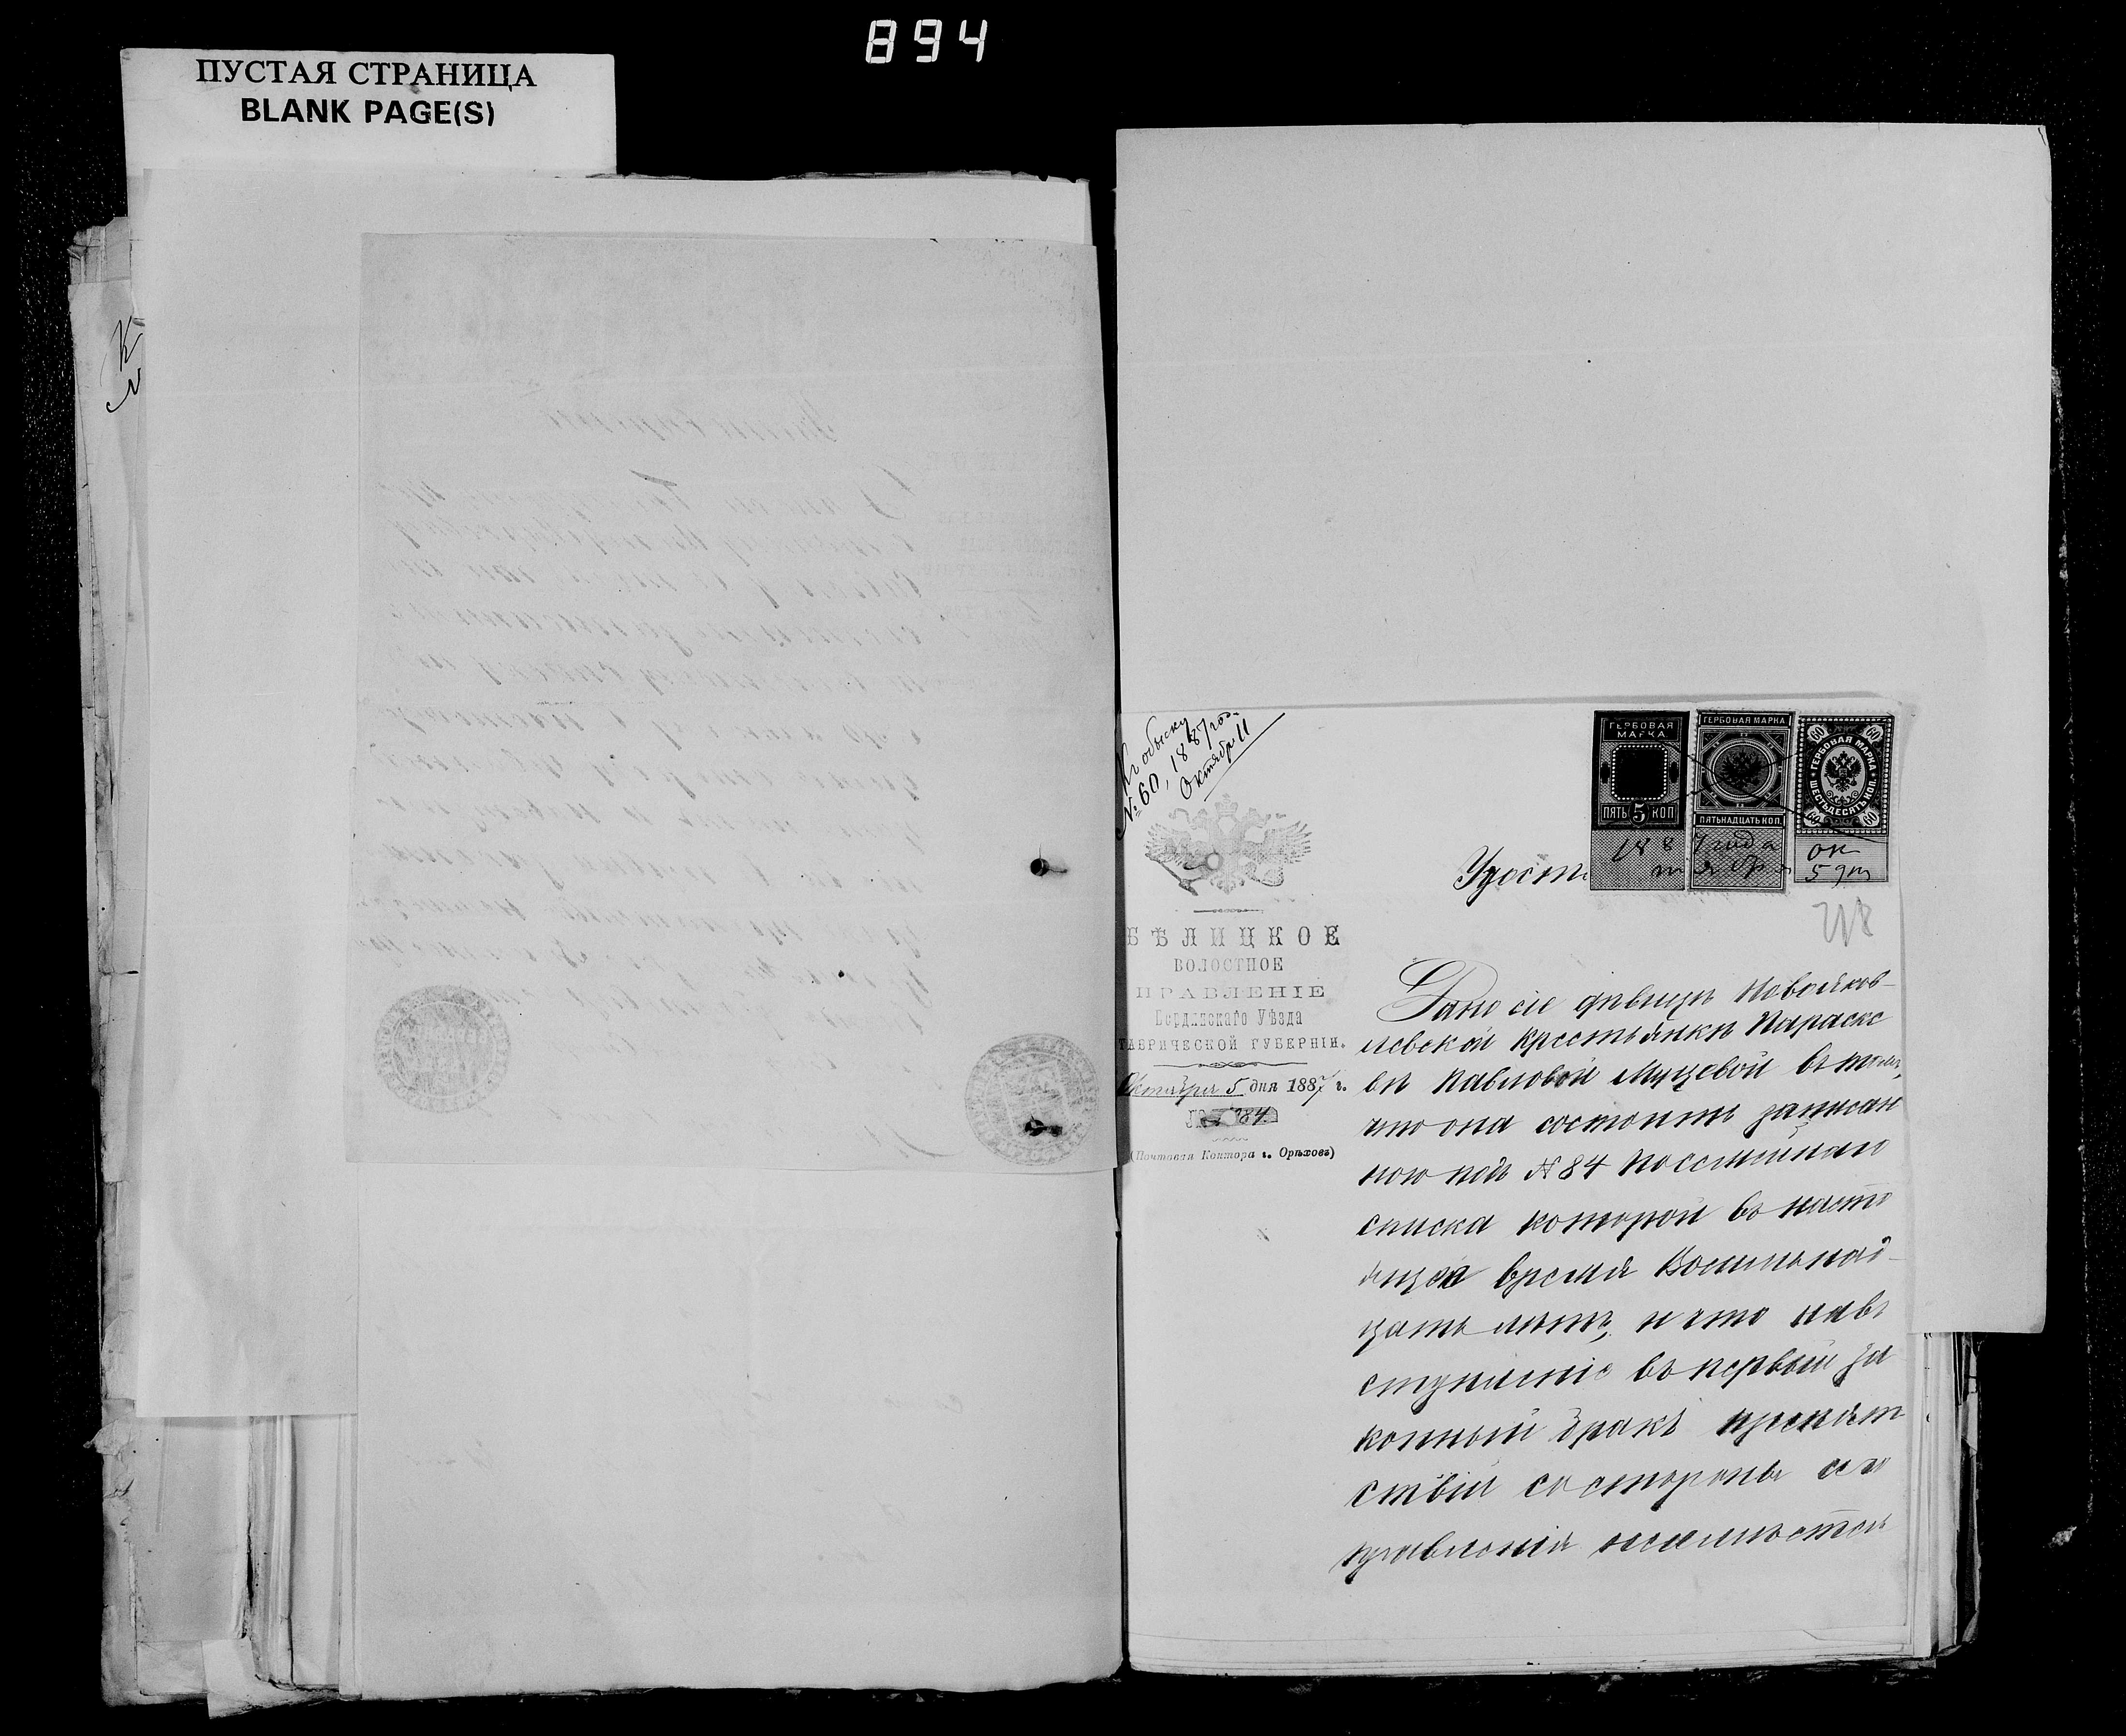 894
ПУСТАЯ СТРАНИЦА
BLANK PAGE(S)
Къ обыску
№ 60, 1887 год.
Октябр. 11
ГЕРБОВАЯ
МАРКА
ПЯТЬ 5 КОП
ГЕРБОВАЯ МАРКА
ПЯТЬНАДЦАТЬ КОП.
60 60
ГЕРБОВАЯ МАРКА
ШЕСТЬДЕСЯТЪ КОП.
60 60
1887 года ок
тября 5 дня
Удост
БѢЛИЦКОЕ
ВОЛОСТНОЕ
ПРАВЛЕНІЕ
Бердянскаго Уѣзда
ТАВРИЧЕСКОЙ ГУБЕРНІИ.
Октября 5 дня 1887 г.
(Почтовая Контора г. Орѣховъ)
Дано сіе дѣвицѣ Новояков-
левской крестьянкѣ Параске
вѣ Павловой Муцевой въ томъ,
что она состоитъ записан
ною подъ № 84 Посемейнаго
списка которой въ насто
ящее время Восемнад-
цать лѣтъ, и что на в
ступленіе въ первый за
конный бракъ препят
ствій со стороны сего
правленія не имѣется